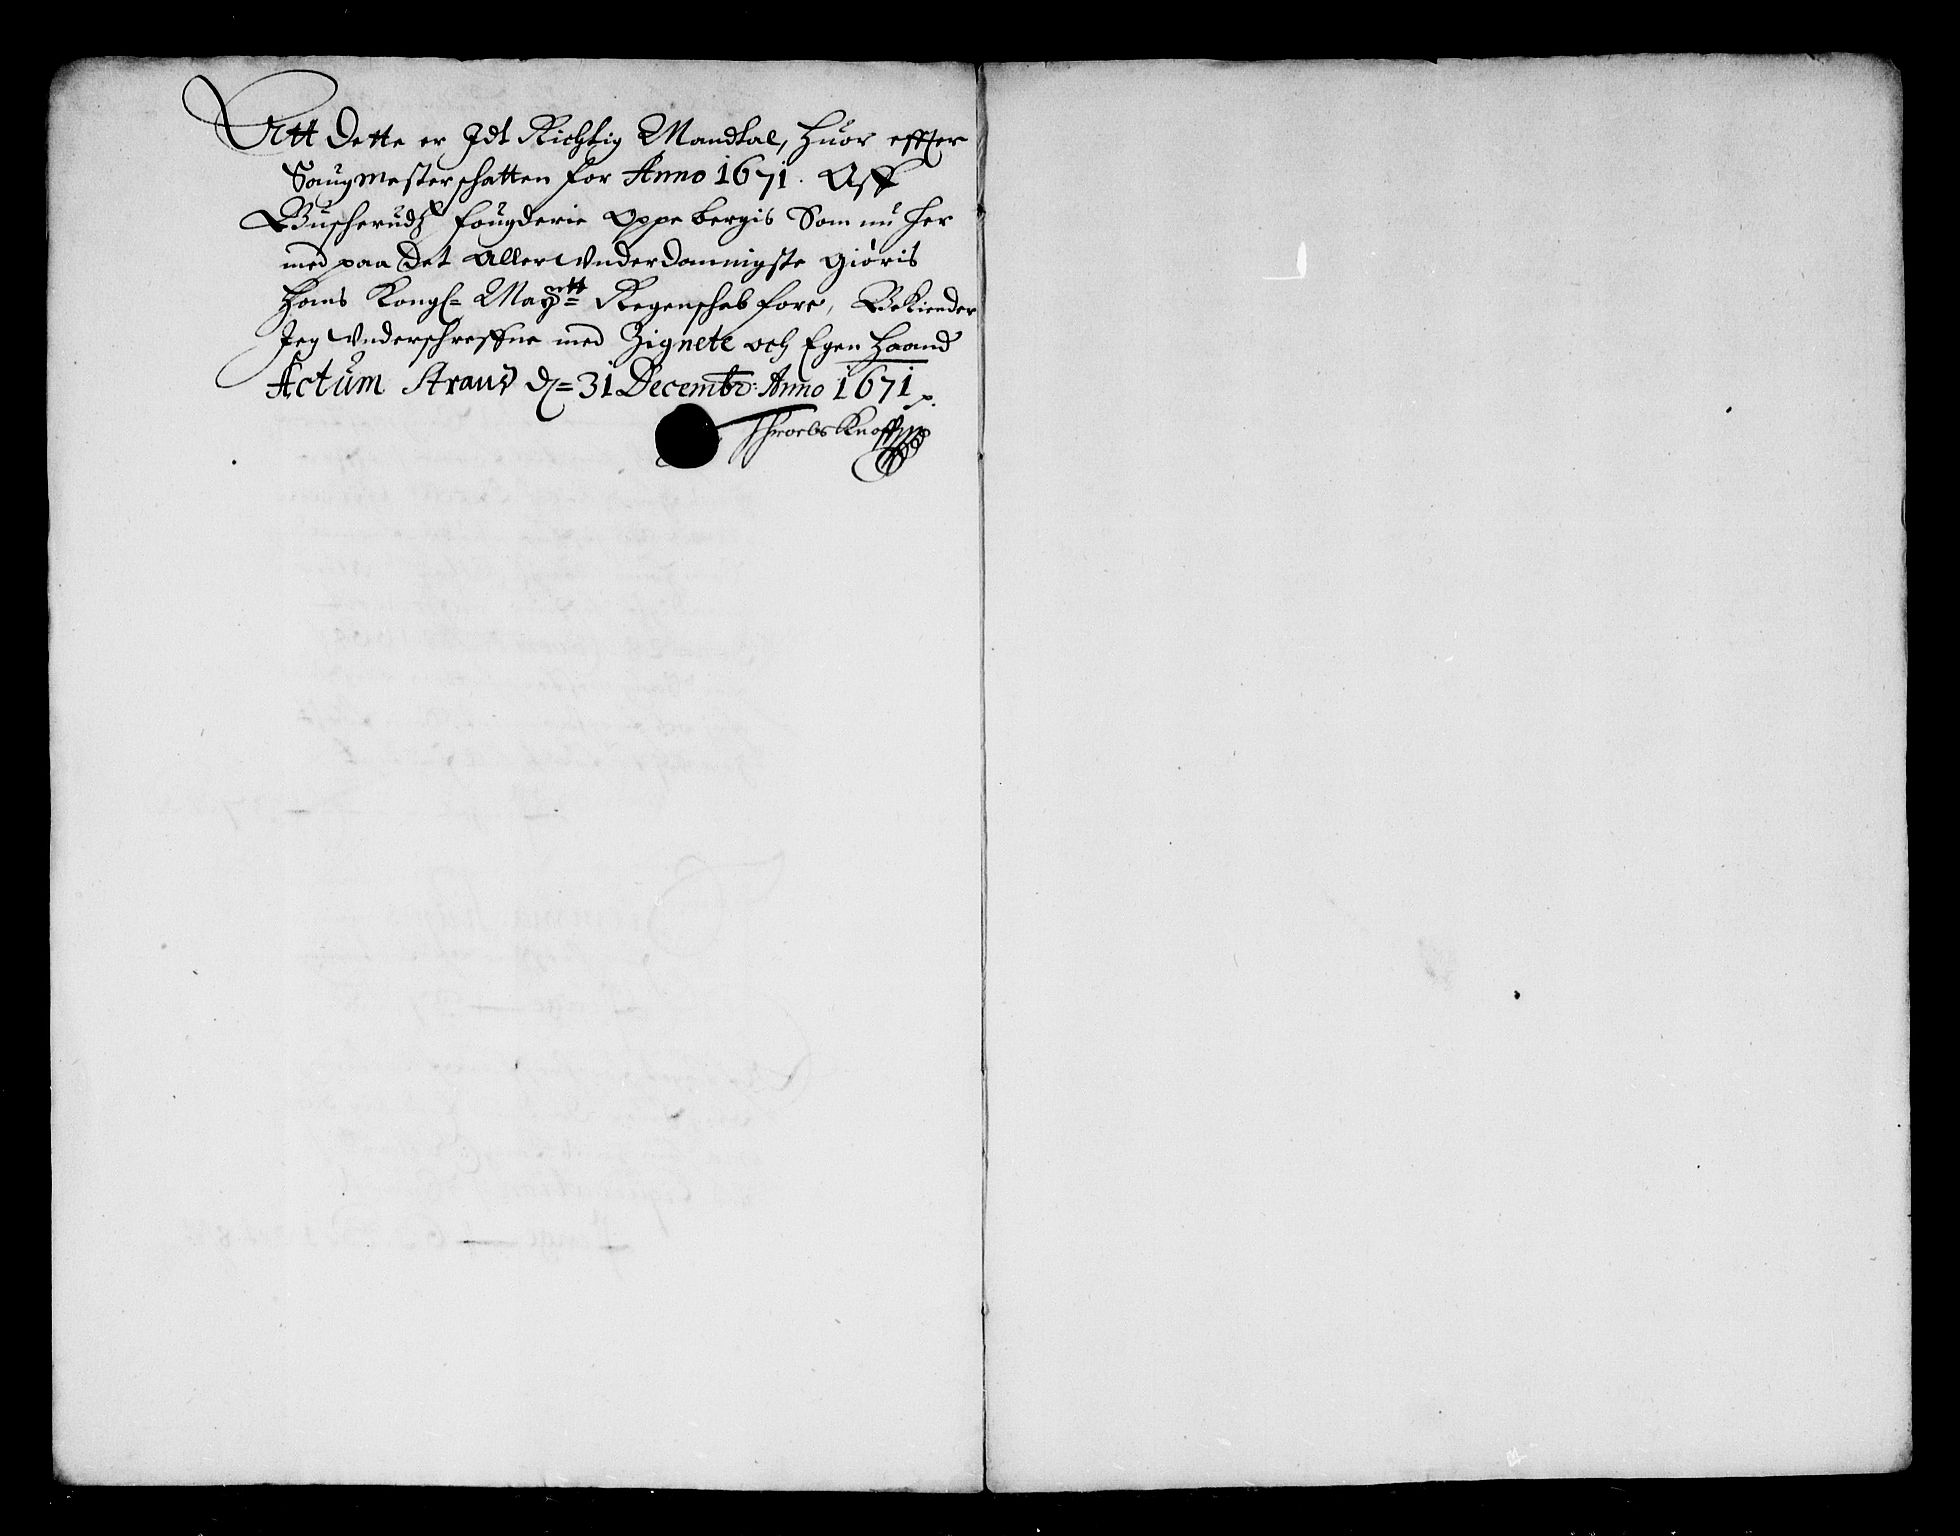 Att dette er Jdt Richtig Mandtal, huor effter
Saugmesterschatten for Anno 1671. Aff
Buscherudz fougderie Oppebergis Som nu her
med paa det Aller Vnderdannigste giøris
Hans Kongl= Maytt= Regenschab fore, Bekiender
Jeg Vnderschreffne med Zignete och Egen haand
Actum Strauz d= 31 Decembr: Anno 1671
Throels Knoff